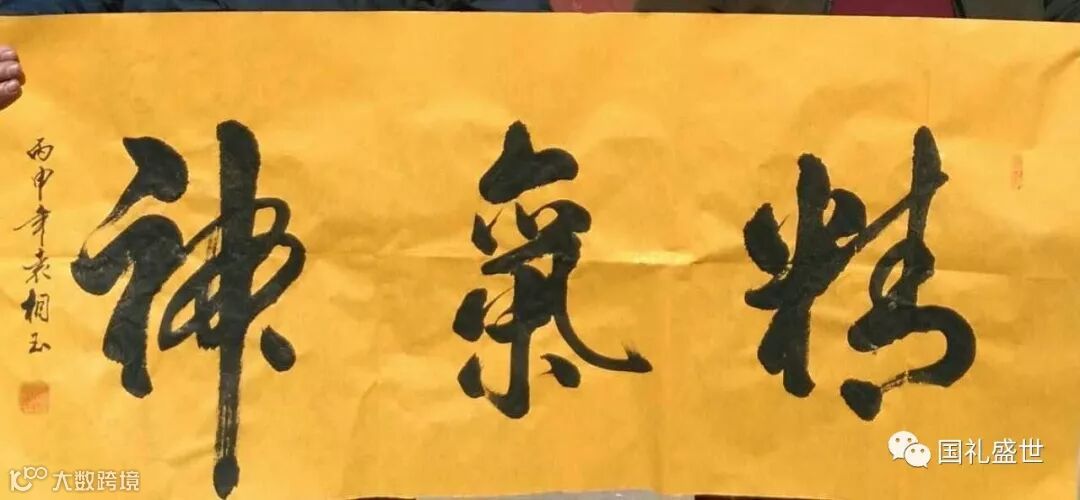 精氣神
丙申年袁相玉
国礼盛世
大数跨境